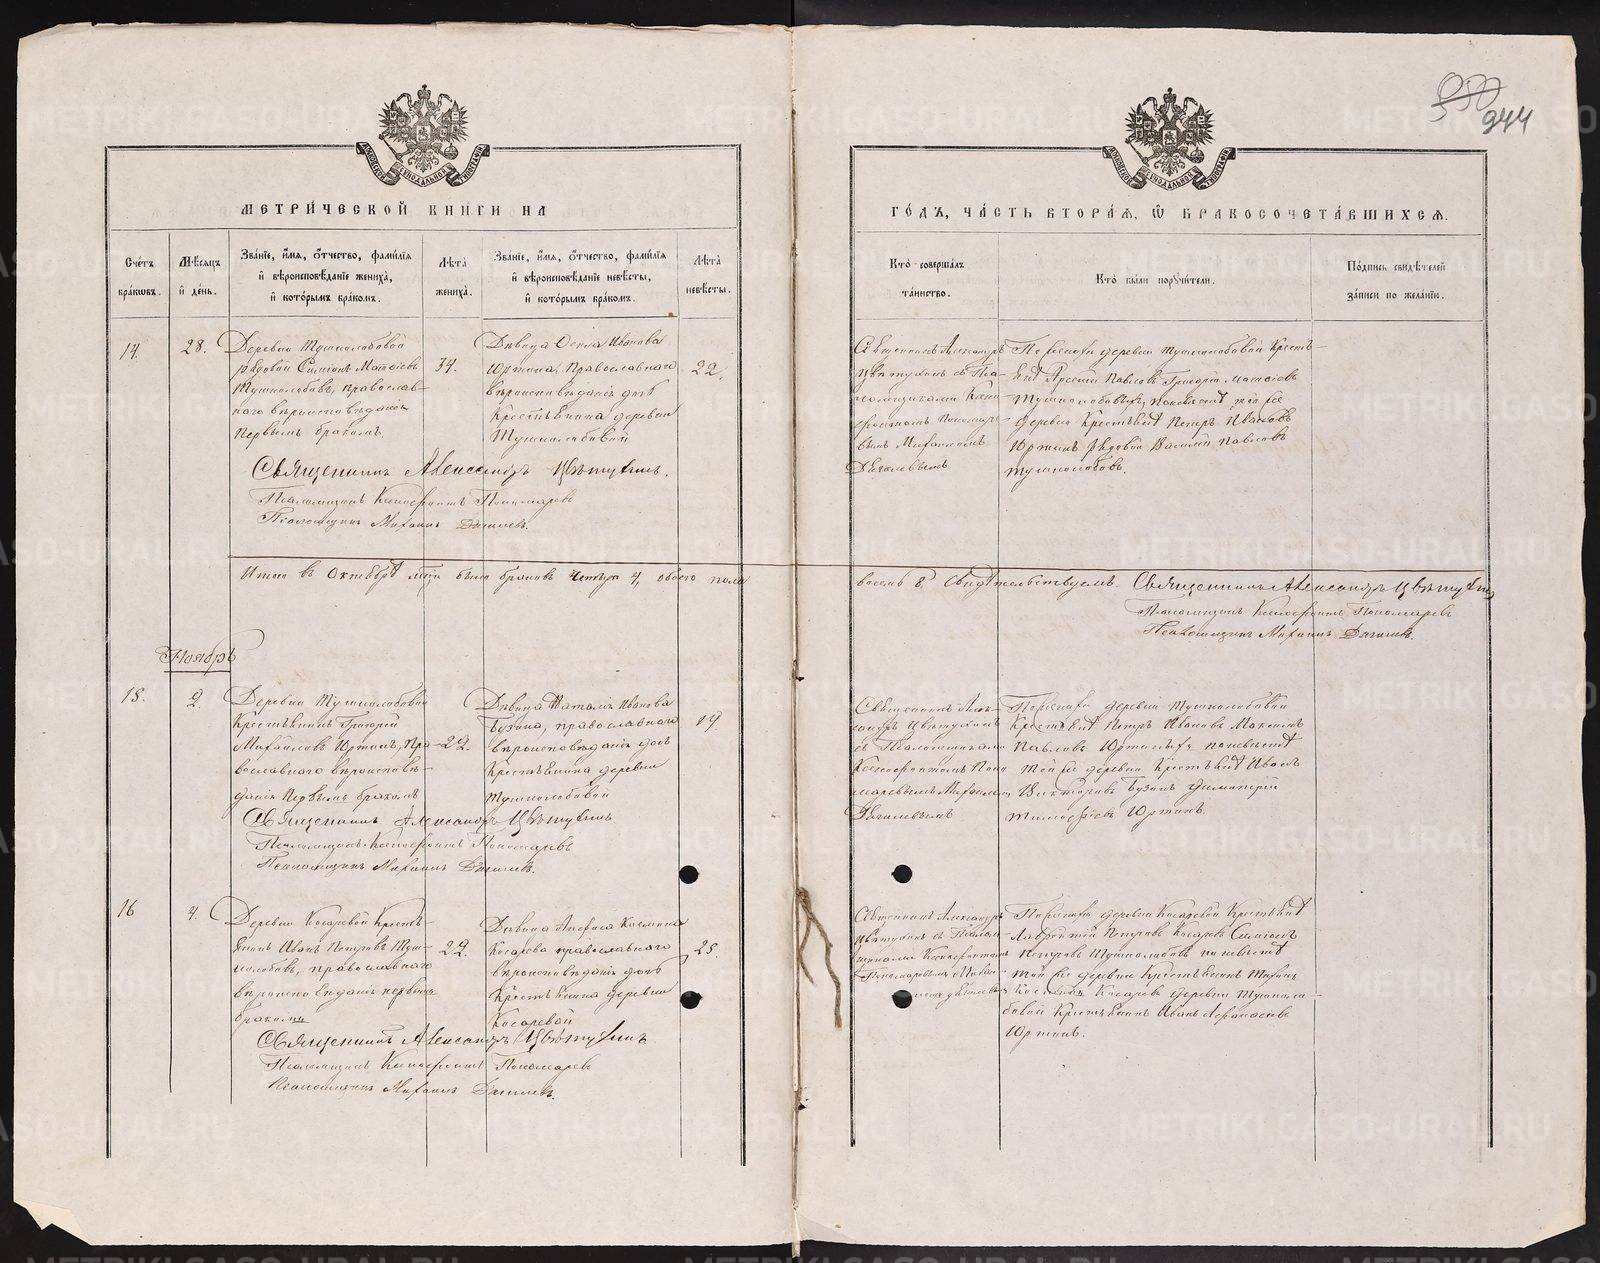 944
МЕТРИЧЕСКОЙ КНИГИ НА
ГОДЪ, ЧАСТЬ ВТОРАЯ, Ѿ БРАКОСОЧЕТАВШИХСЯ.
Счетъ браковъ.
Мѣсяцъ и день.
Званіе, имя, отчество, фамилія
и вѣроисповѣданіе жениха,
и которымъ бракомъ.
Лѣта жениха.
Званіе, имя, отчество, фамилія
и вѣроисповѣданіе невѣсты,
и которымъ бракомъ.
Лѣта невѣсты.
Кто совершалъ
таинство.
Кто были поручители.
Подпись свидѣтелей
записи по желанію.
14.
28.
Деревни Тушнолобовой
рядовой Симеонъ Матѳіевъ
Тушнолобовъ, православ-
наго вѣроисповѣданія
Первымъ бракомъ.
34.
Дѣвица Иванова
Юртина, Православнаго
вѣроисповѣданія дочь
Крестьянина деревни
Тушнолобовой
22.
Священникъ Александръ
Цвѣтухинъ съ Пса-
ломщиками Ксено-
фонтомъ Пономаре-
вымъ Михаиломъ
По женихѣ деревни Тушнолобовой Кресть-
яне Арсеній Павловъ Григорій Матѳіевъ
Тушнолобовы, по невѣстѣ той же
деревни Крестьяне Петръ Ивановъ
Юртинъ рядовой Василій Павловъ
Тушнолобовъ.
Священникъ Александръ Цвѣтухинъ.
Псаломщикъ Ксенофонтъ Пономаревъ
Псаломщикъ Михаилъ
Итого въ Октябрѣ м-цѣ было браковъ четыре 4, обоего пола
восемь 8 Свидѣтельствуемъ. Священникъ Александръ Цвѣтухинъ
Псаломщикъ Ксенофонтъ Пономаревъ
Псаломщикъ Михаилъ
Ноябрь
15.
2.
Деревни Тушнолобовой
Крестьянинъ Григорій
Михайловъ Юртинъ, Пра-
вославнаго вѣроисповѣ-
данія Первымъ бракомъ
22.
Дѣвица Наталія Иванова
Бузина, православнаго
вѣроисповѣданія дочь
Крестьянина деревни
Тушнолобовой
19.
Священникъ Алек-
сандръ Цвѣтухинъ
съ Псаломщиками
Ксенофонтомъ Поно-
маревымъ Михаиломъ
По женихѣ деревни Тушнолобовой
Крестьяне Петръ Ивановъ Максимъ
Павловъ Юртины, по невѣстѣ
той же деревни Крестьяне Иванъ
Викторовъ Бузинъ Димитрій
Тимофѣевъ Юртинъ.
Священникъ Александръ Цвѣтухинъ
Псаломщикъ Ксенофонтъ Пономаревъ
Псаломщикъ Михаилъ
16
4.
Деревни Косаревой Кресть-
янинъ Иванъ Петровъ Туш-
нолобовъ, православнаго
вѣроисповѣданія первымъ
бракомъ
22.
Дѣвица Анфиса Космина
Косарева православнаго
вѣроисповѣданія дочь
Крестьянина деревни
Косаревой
25.
Священникъ Александръ
Цвѣтухинъ съ Псалом-
щиками Ксенофонтомъ
Пономаревымъ Михаи-
По женихѣ деревни Косаревой Крестьяне
Лаврентій Петровъ Косаревъ Симеонъ
Петровъ Тушнолобовъ по невѣстѣ
той же деревни Крестьянинъ
Косаревъ деревни Тушноло-
бовой Крестьянинъ Иванъ Афанасіевъ
Юртинъ.
Священникъ Александръ Цвѣтухинъ
Псаломщикъ Ксенофонтъ Пономаревъ
Псаломщикъ Михаилъ
METRIKI.GASO-URAL.RU